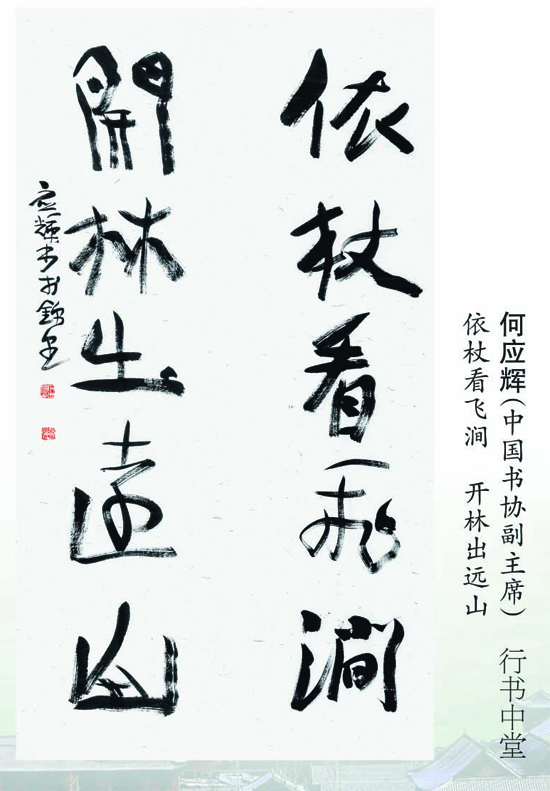 何应辉(中国书协副主席) 行书中堂
依杖看飞涧 开林出远山
依杖看飛澗
開林出遠山
应輝书於錦